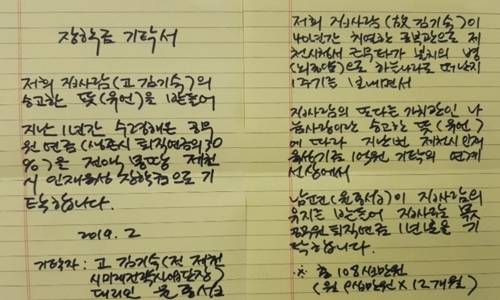 장학금 기탁서
저희 집사람(고 김기숙)의
숭고한 뜻(유언)을 받들어
지난 1년간 수령해온 공무
원 연금(생존시 퇴직연금의30
%)을 전액 몽땅 제천
시 인재육성 장학금으로 기
탁합니다.
2019. 2
기탁자 : 고 김기숙(전 제천
시미래전략사업단장)
대리인 윤종섭
저희 집사람(故 김기숙)이
40년간 공복관으로 제
천시청에서 근무타가 불치의 병
(뇌종양)으로 하늘나라로 떠난지
1주기를 보내면서
집사람의 또다른 가치관인 나
눔사랑이란 숭고한 뜻(유언)
에 따라 지난번 제천시인재
육성기금 1억원 기탁의 연계
선상에서
남편(윤종섭)이 집사람의
유지를 받들어 집사람 몫
공무원 퇴직연금 기
탁합니다.
※ 총 108십만원
(월 9십만원 X 12개월)